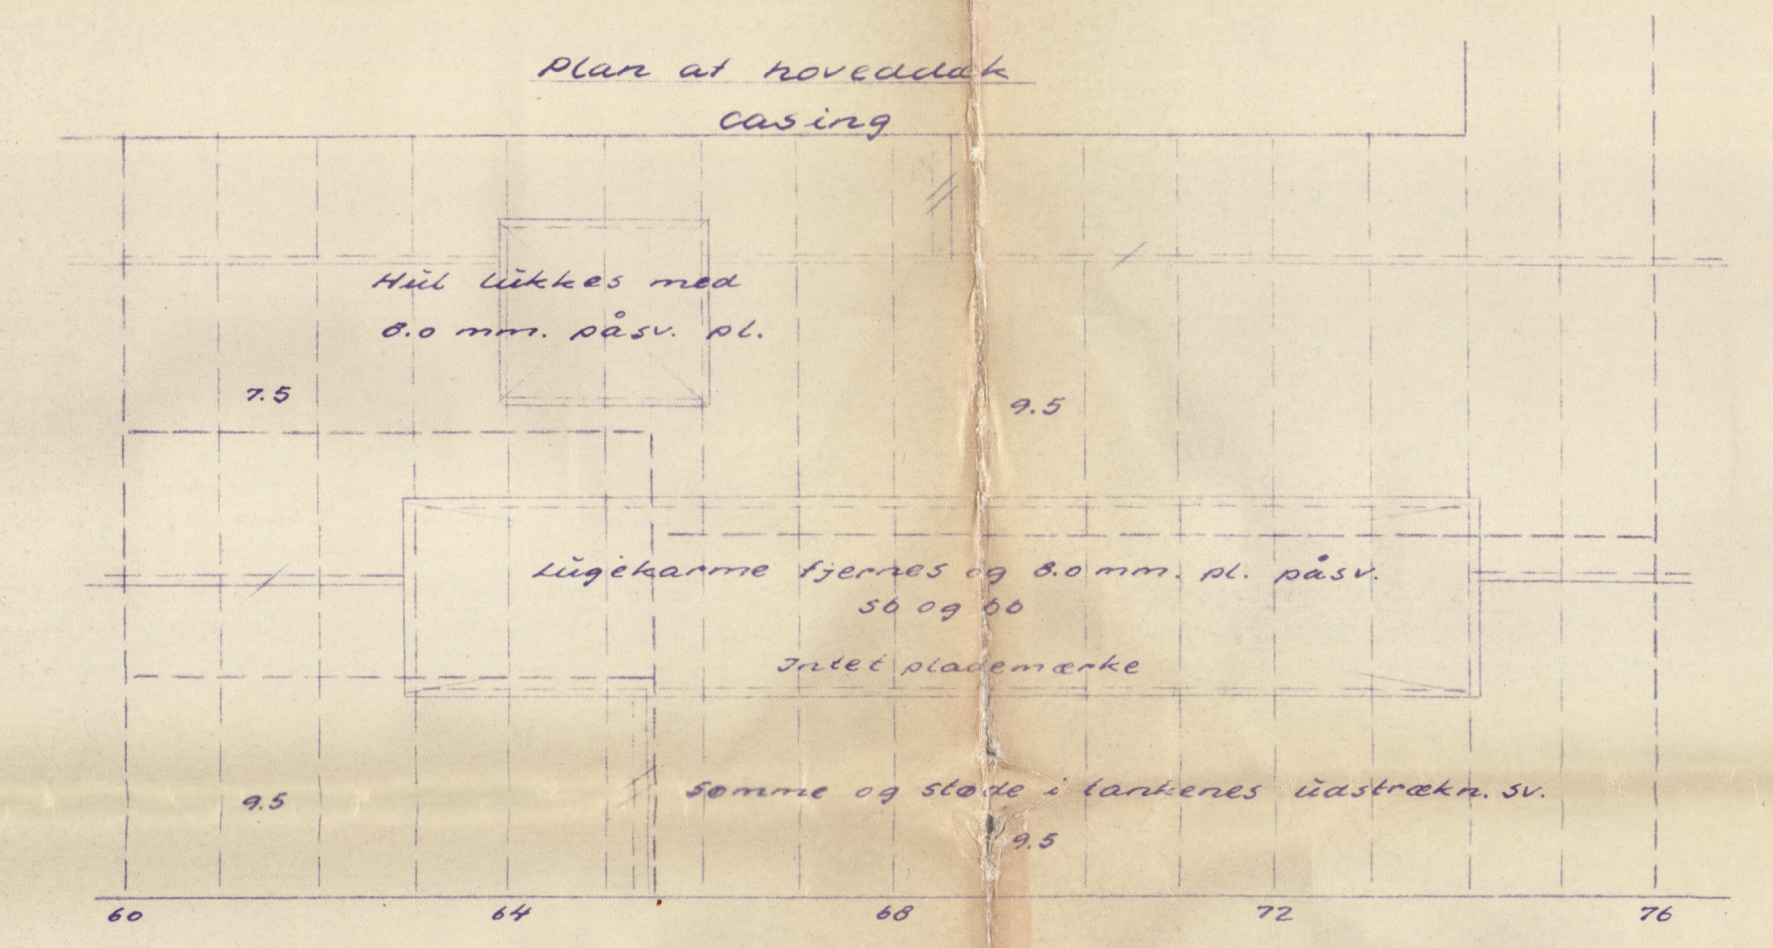 Plan af hoveddæk
casing
Hŭl lŭkkes med
8.0 mm. påsv. pl.
7.5
9.5
Lŭgekarme fjernes og 8.0 mm. pl. påsv.
sb og bb
Intet plademærke
Sømme og støde i tankenes ŭdstrækn. sv.
9.5
9.5
60 64 68 72 76